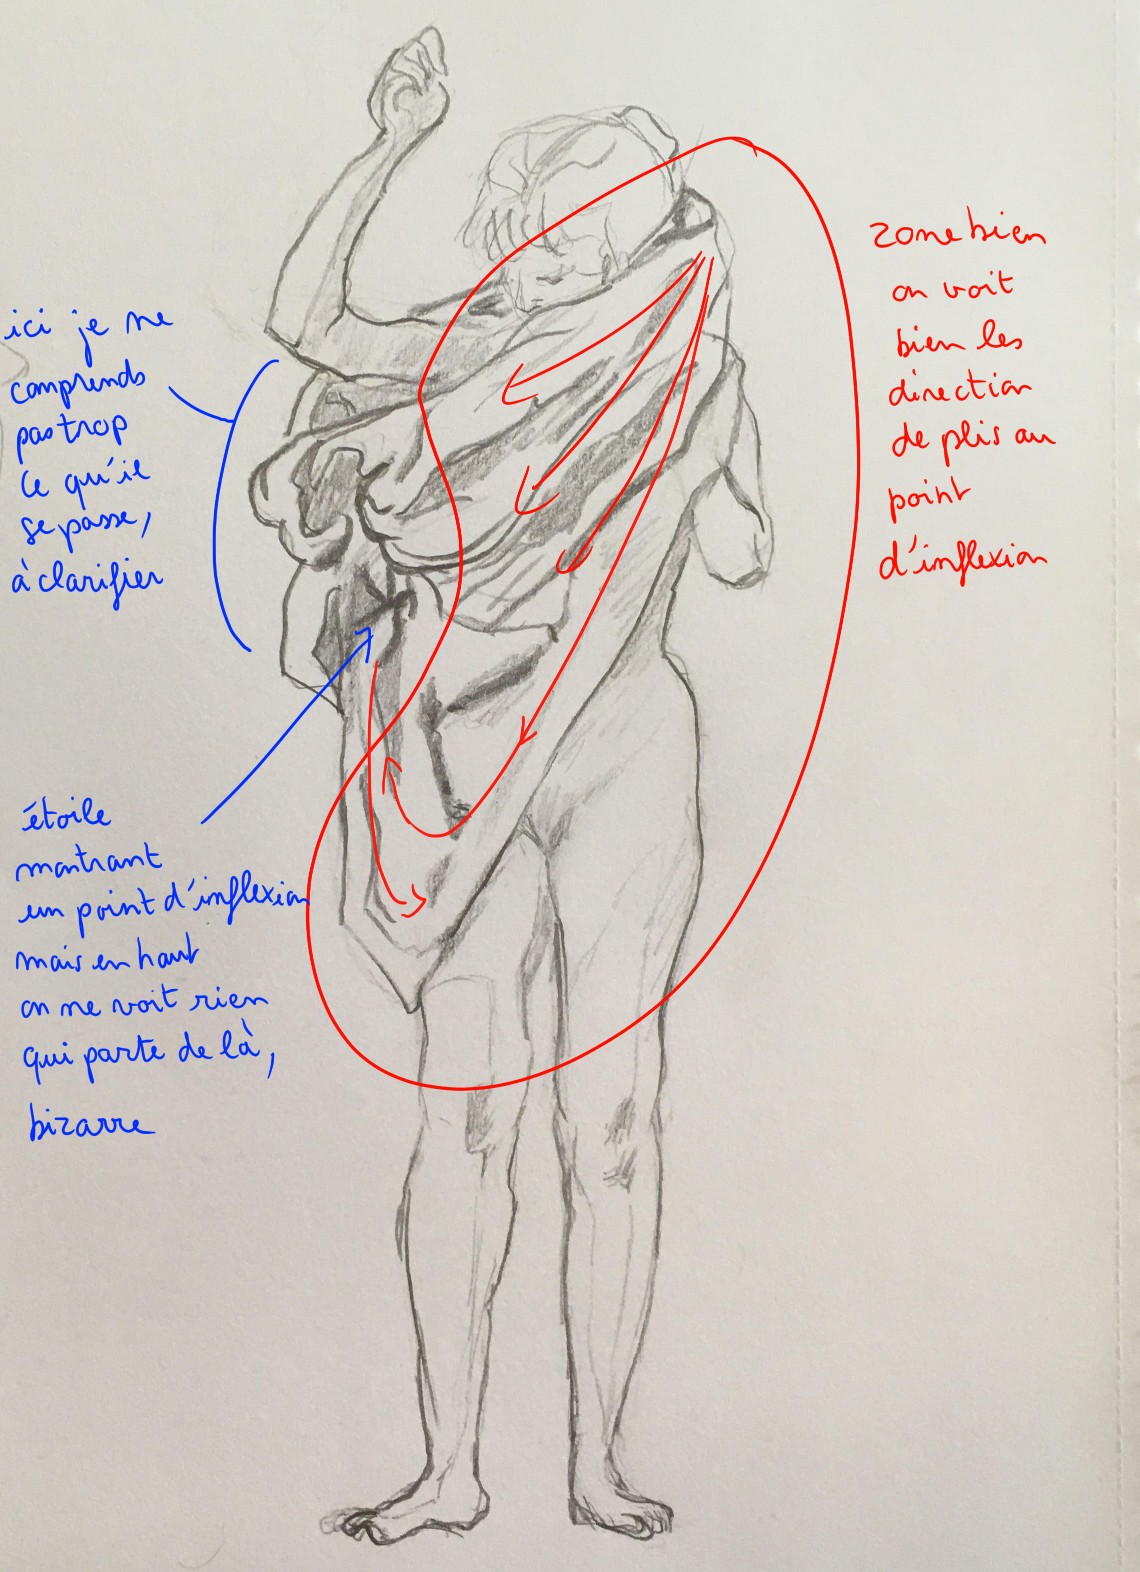 ici je ne
comprends
pas trop
ce qu'il
se passe,
à clarifier
étoile
montrant
un point d'inflexion
mais en haut
on ne voit rien
qui parte de là,
bizarre
zone bien
on voit
bien les
direction
de plis au
point
d'inflexion